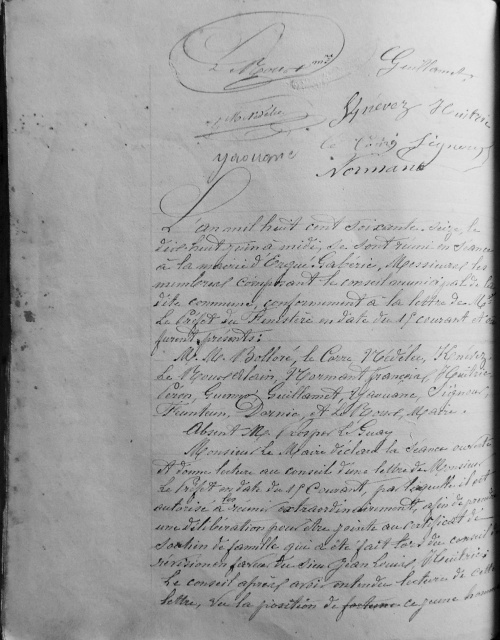 Guillamet
Huitric
le Corre Signour
Yaouanc Normant
L'an mil huit cent soixante seize, le
dix huit juin à midi, se sont réuni en séance
à la mairie d'Ergué Gabéric, Messieurs les
membres composant le conseil municipal de la
dite commune, conformément à la lettre de Mr
Le Préfet du Finistère en date du 15 courant
furent présents:
M. M. Bolloré, le Corre, Nédélec,
Le Roux Alain, Normant français, Huitric
Guillamet, Yaouanc, Signour,
et Le Roux, Maire.
Absent Mr. Prosper Le Guay
Monsieur Le Maire déclare la séance ouverte
Et donne lecture au conseil d'une lettre de Monsieur
Le Préfet en date du 15 Courant, par laquelle il est
autorisé à réunir extraordinairement, afin de prendre
une délibération pour être jointe au certificat de
soutien de famille qui a été fait lors du conseil de
révision en faveur du sieur Jean Louis, Huitric
Le conseil après avoir entendu lecture de cette
lettre, Vu la position de fortune ce jeune